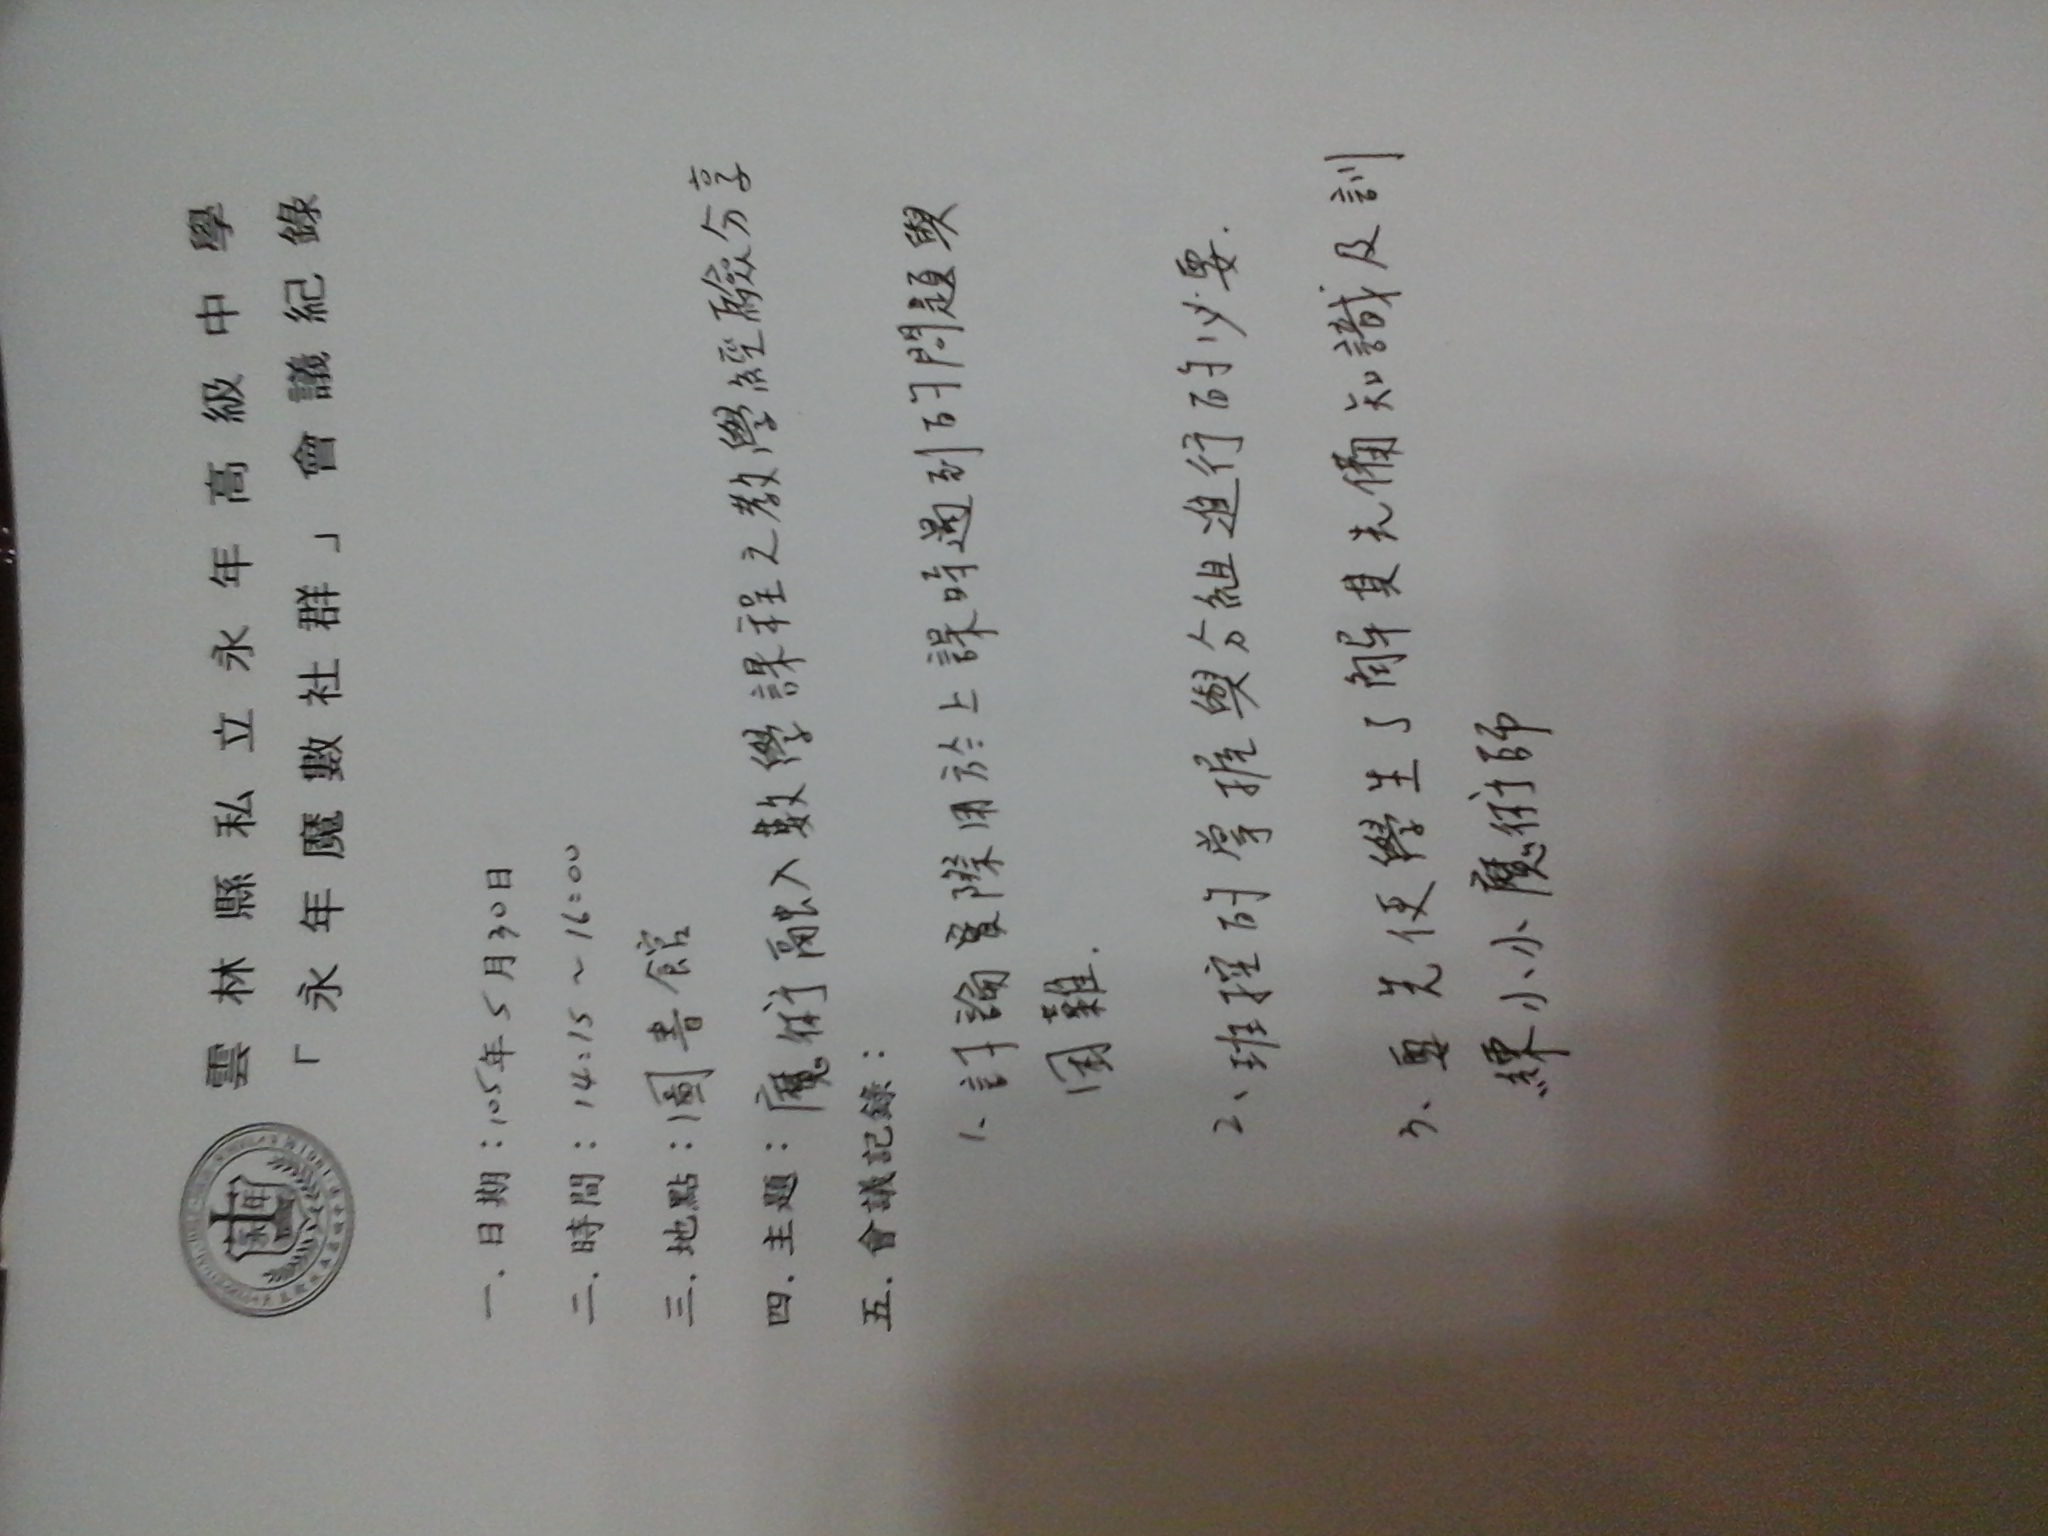 雲林縣私立永年高級中學
「永年魔數社群」會議紀錄
永年
1981
一.日期：105年5月30日
二.時間：14:15～16:00
三.地點：圖書館
四.主題：魔術融入數學課程之教學經驗分享
五.會議記錄：
1、討論實際用於上課時遇到的問題與
困難.
2、班控的掌握與分組進行的必要.
3、要先使學生了解其先備知識及訓
練小小魔術師